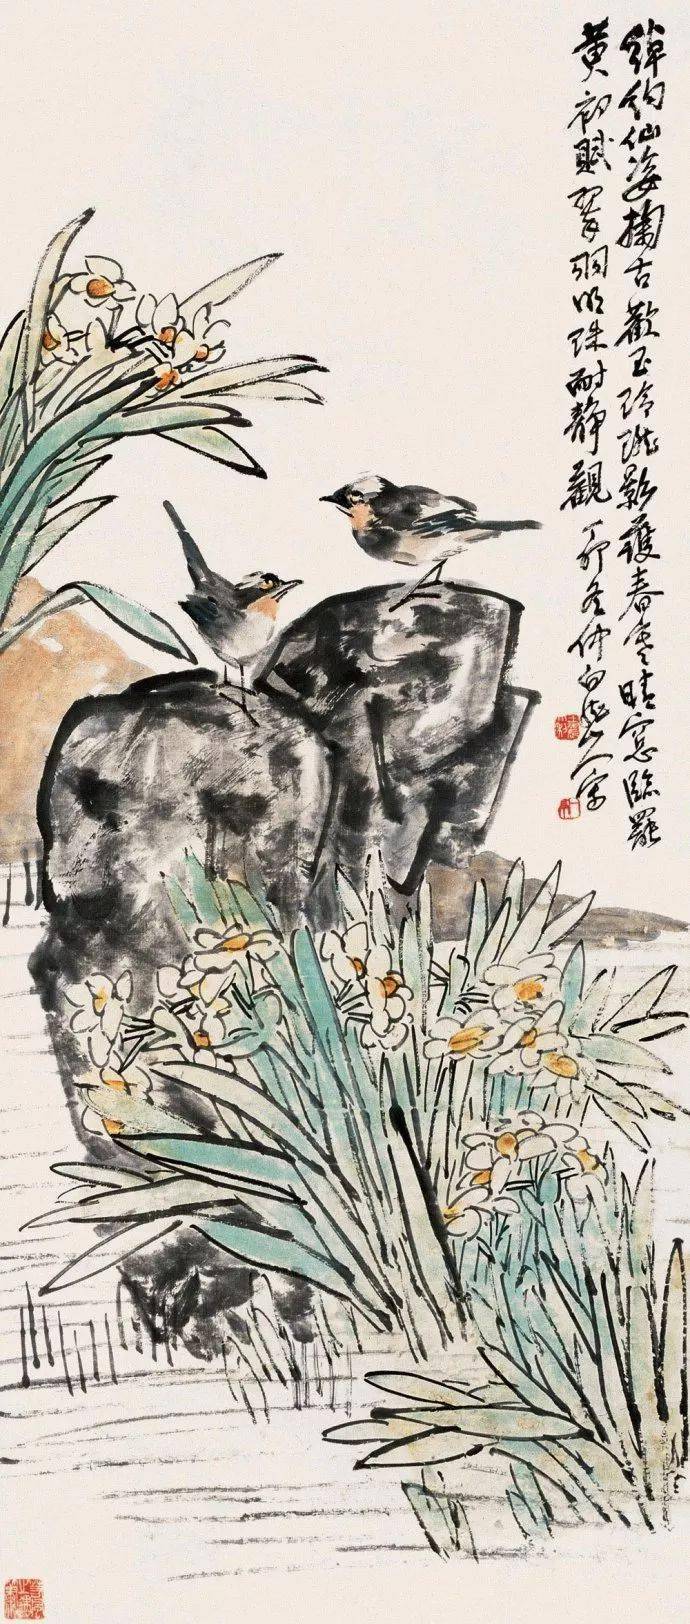 綽約仙姿掬古歡玉玲瓏影護春寒晴窗臨罷
黃初賦翠羽明珠耐靜觀丁卯冬仲白龍山人寫